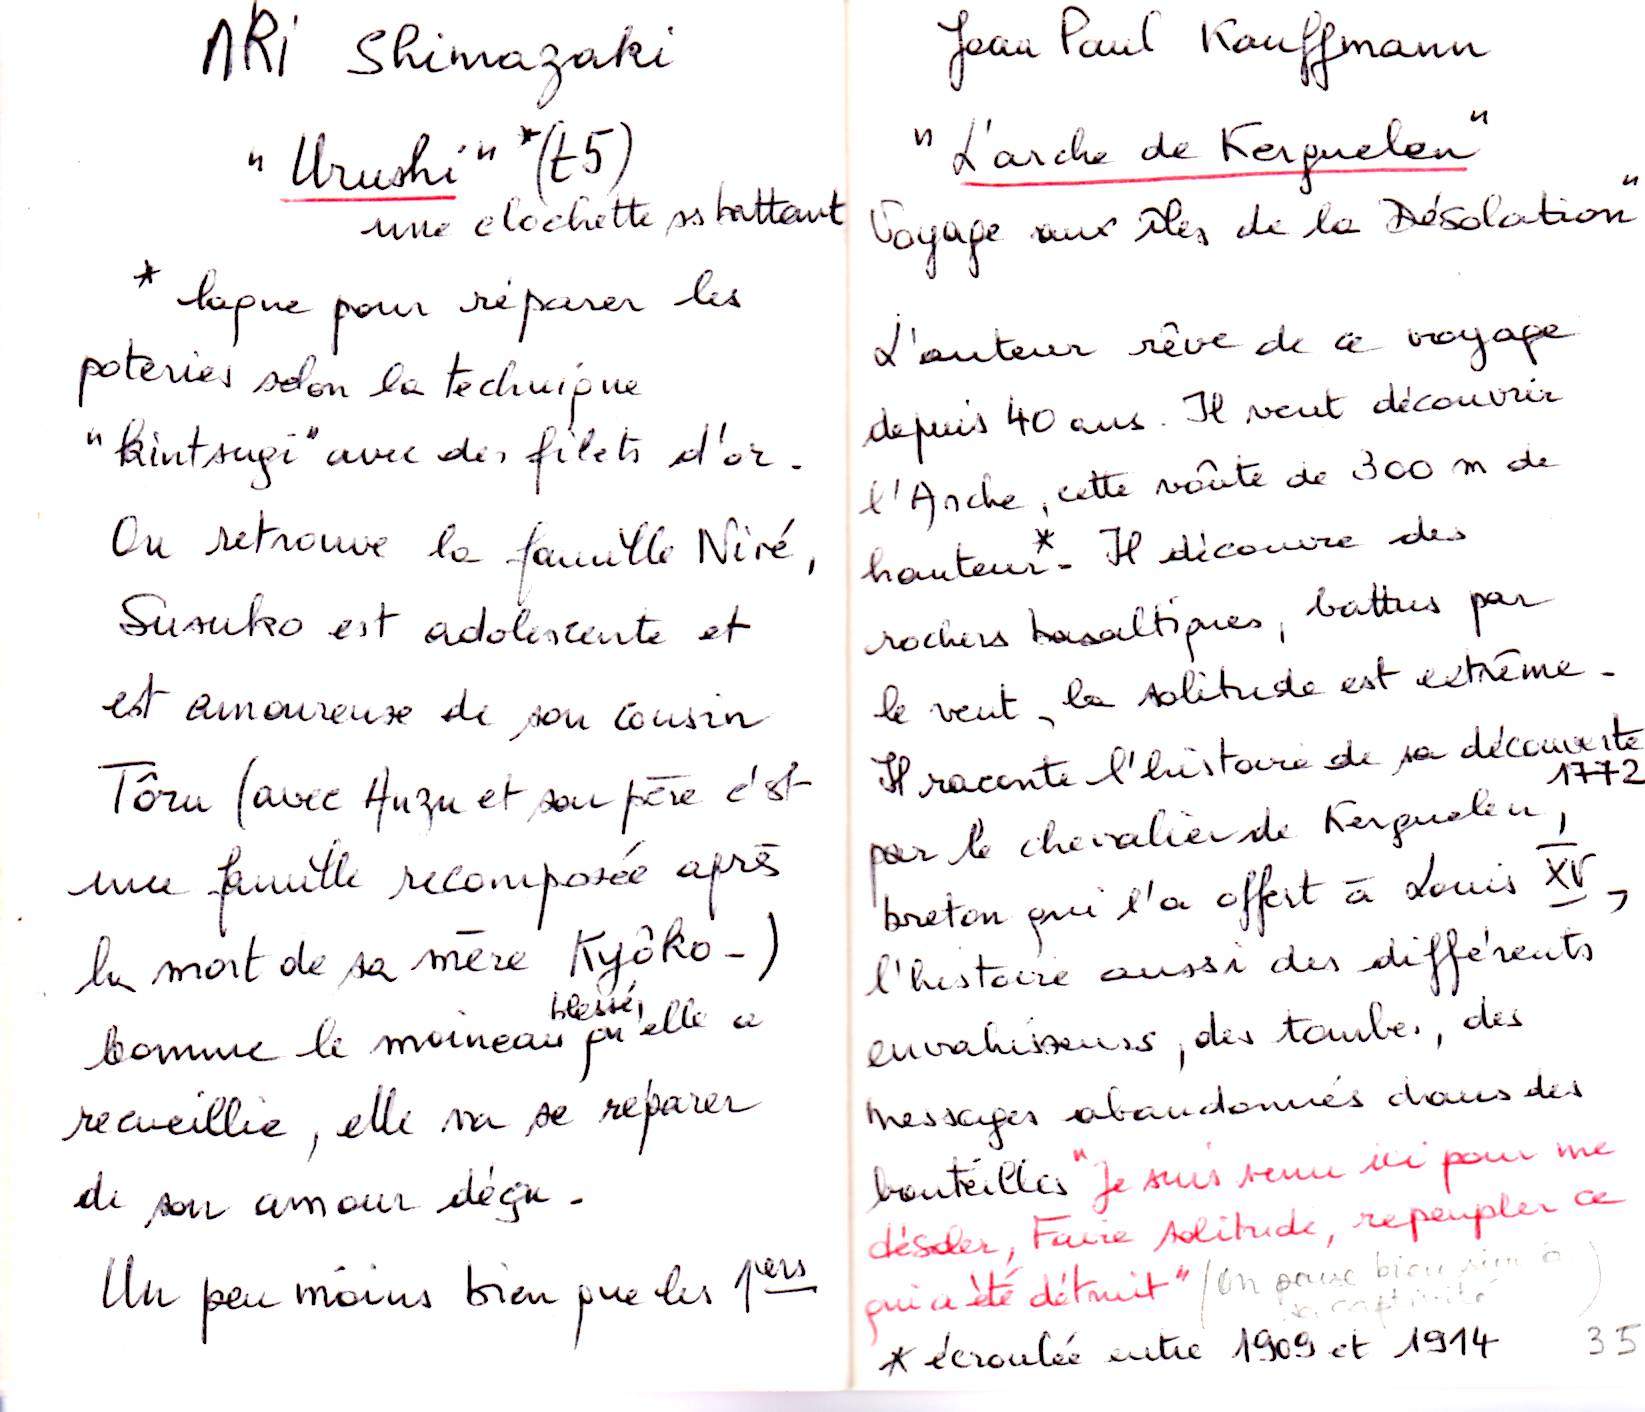 AKI Shimazaki
"Urushi" * (t5)
une clochette ss battant
* laque pour réparer les
poteries selon la technique
"kintsugi" avec des filets d'or.
On retrouve la famille Niré,
Suzuko est adolescente et
est amoureuse de son cousin
Tôru (avec Anzu et son père c'est
une famille recomposée après
la mort de sa mère Kyôko-)
comme le moineau blessé qu'elle a
recueillie, elle va se reparer
de son amour déçu.
Un peu moins bien que les 1ers
Jean Paul Kauffmann
"L'arche de Kerguelen"
Voyage aux îles de la Désolation"
L'auteur rêve de ce voyage
depuis 40 ans. Il veut découvrir
l'Arche, cette voûte de 300 m de
hauteur*. Il découvre des
rochers basaltiques, battus par
le vent, la solitude est extrême.
Il raconte l'histoire de sa découverte
1772
par le chevalier de Kerguelen,
breton qui l'a offert à Louis XV,
l'histoire aussi des différents
envahisseurs, des tombes, des
messages abandonnés dans des
bouteilles "Je suis venu ici pour me
désoler, Faire solitude, repeupler ce
qui a été détruit" (On pense bien sûr à
sa captivité)
* écroulée entre 1909 et 1914
35